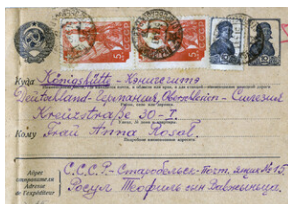 Куда Königshütte - Кэнигсгитэ
Deutschland - Германия, Oberschlesien - Силезия
Kreuzstraße 30 - I.
Кому Frau Anna Rosol.
Адрес
отправителя
Adresse
de l'expéditeur
С.С.С.Р. - Старобельск - Почт. ящик № 15.
Росул Теофиль сын Вавжынца.